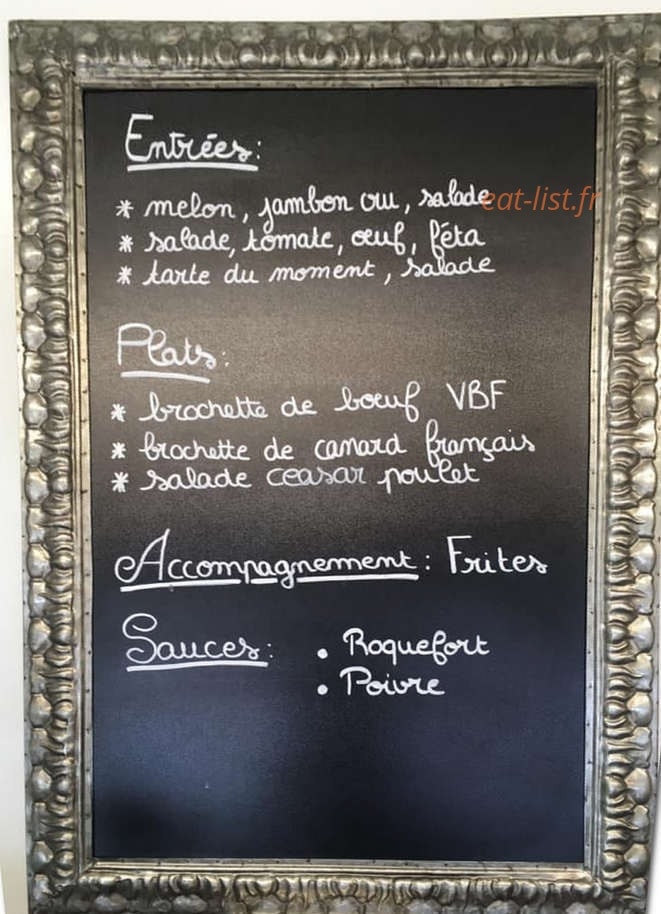 Entrées:
* melon, jambon cru, salade
eat-list.fr
* salade, tomate, œuf, féta
* tarte du moment, salade
Plats:
* brochette de bœuf VBF
* brochette de canard français
* salade ceasar poulet
Accompagnement: Frites
Sauces: • Roquefort
• Poivre